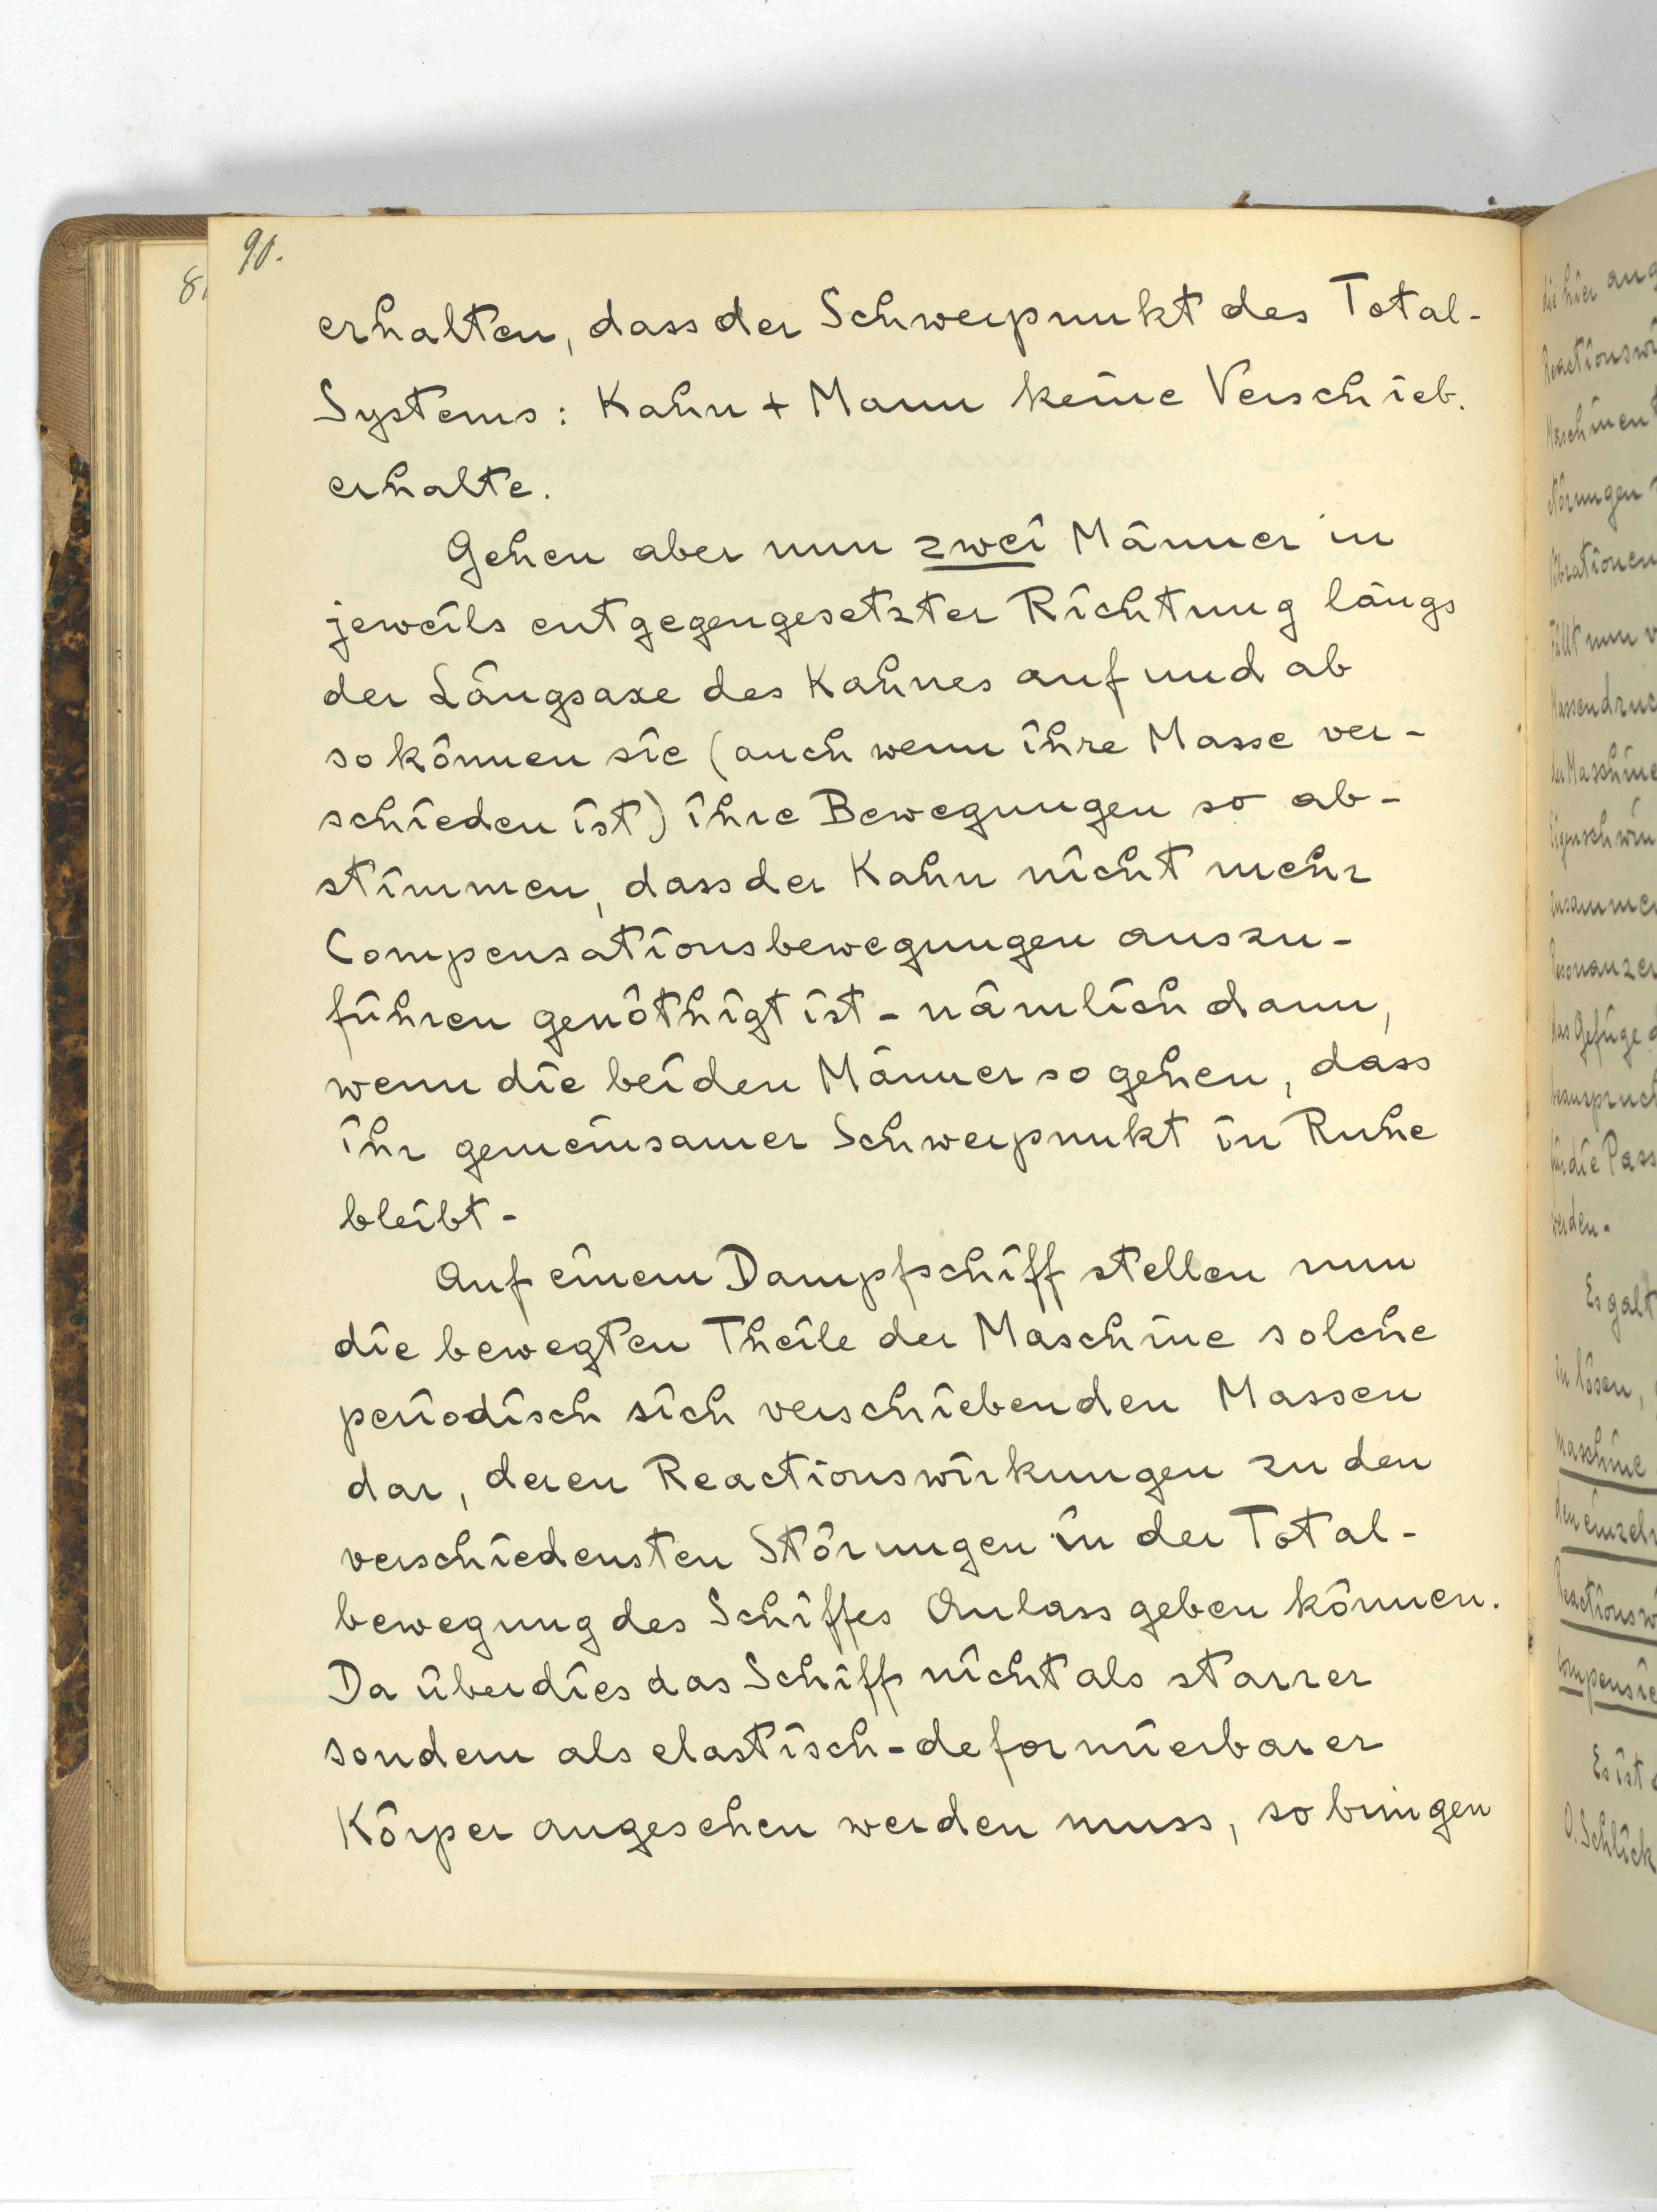 90.
erhalten, dass der Schwerpunkt des Total-
Systems: Kahn + Mann keine Verschieb.
erhalte.
Gehen aber nun zwei Männer in
jeweils entgegengesetzter Richtung längs
der Längsaxe des Kahnes auf und ab
so können sie (auch wenn ihre Masse ver-
schieden ist) ihre Bewegungen so ab-
stimmen, dass der Kahn nicht mehr
Compensationsbewegungen auszu-
führen genöthigt ist - nämlich dann,
wenn die beiden Männer so gehen, dass
ihr gemeinsamer Schwerpunkt in Ruhe
bleibt -
Auf einem Dampfschiff stellen nun
die bewegten Theile der Maschine solche
periodisch sich verschiebenden Massen
dar, deren Reactionswirkungen zu den
verschiedensten Störungen in der Total-
bewegung des Schiffes Anlass geben können.
Da überdies das Schiff nicht als starrer
sondern als elastisch-deformierbarer
Körper angesehen werden muss, so bringen
die hier
werden.
Es galt
zu lösen,
Maschine
Es ist
O. Schlick